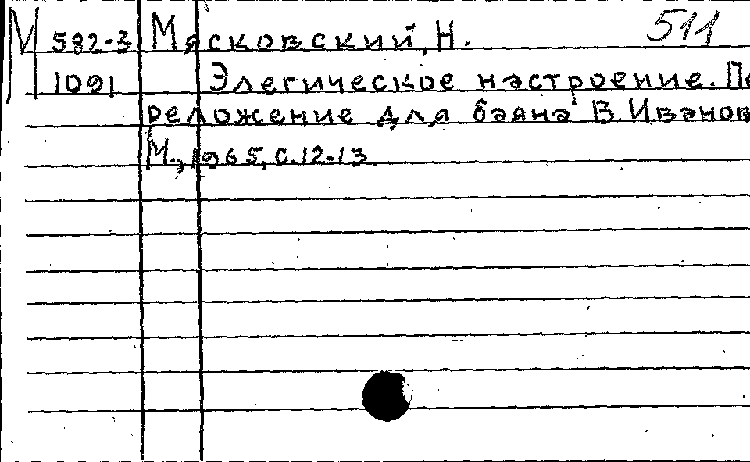 М 582-3 Мясковский, Н. 511
1091 Элегическое настроение. Пе
реложение для баяна В Иванов
М., 1965, с. 12-13